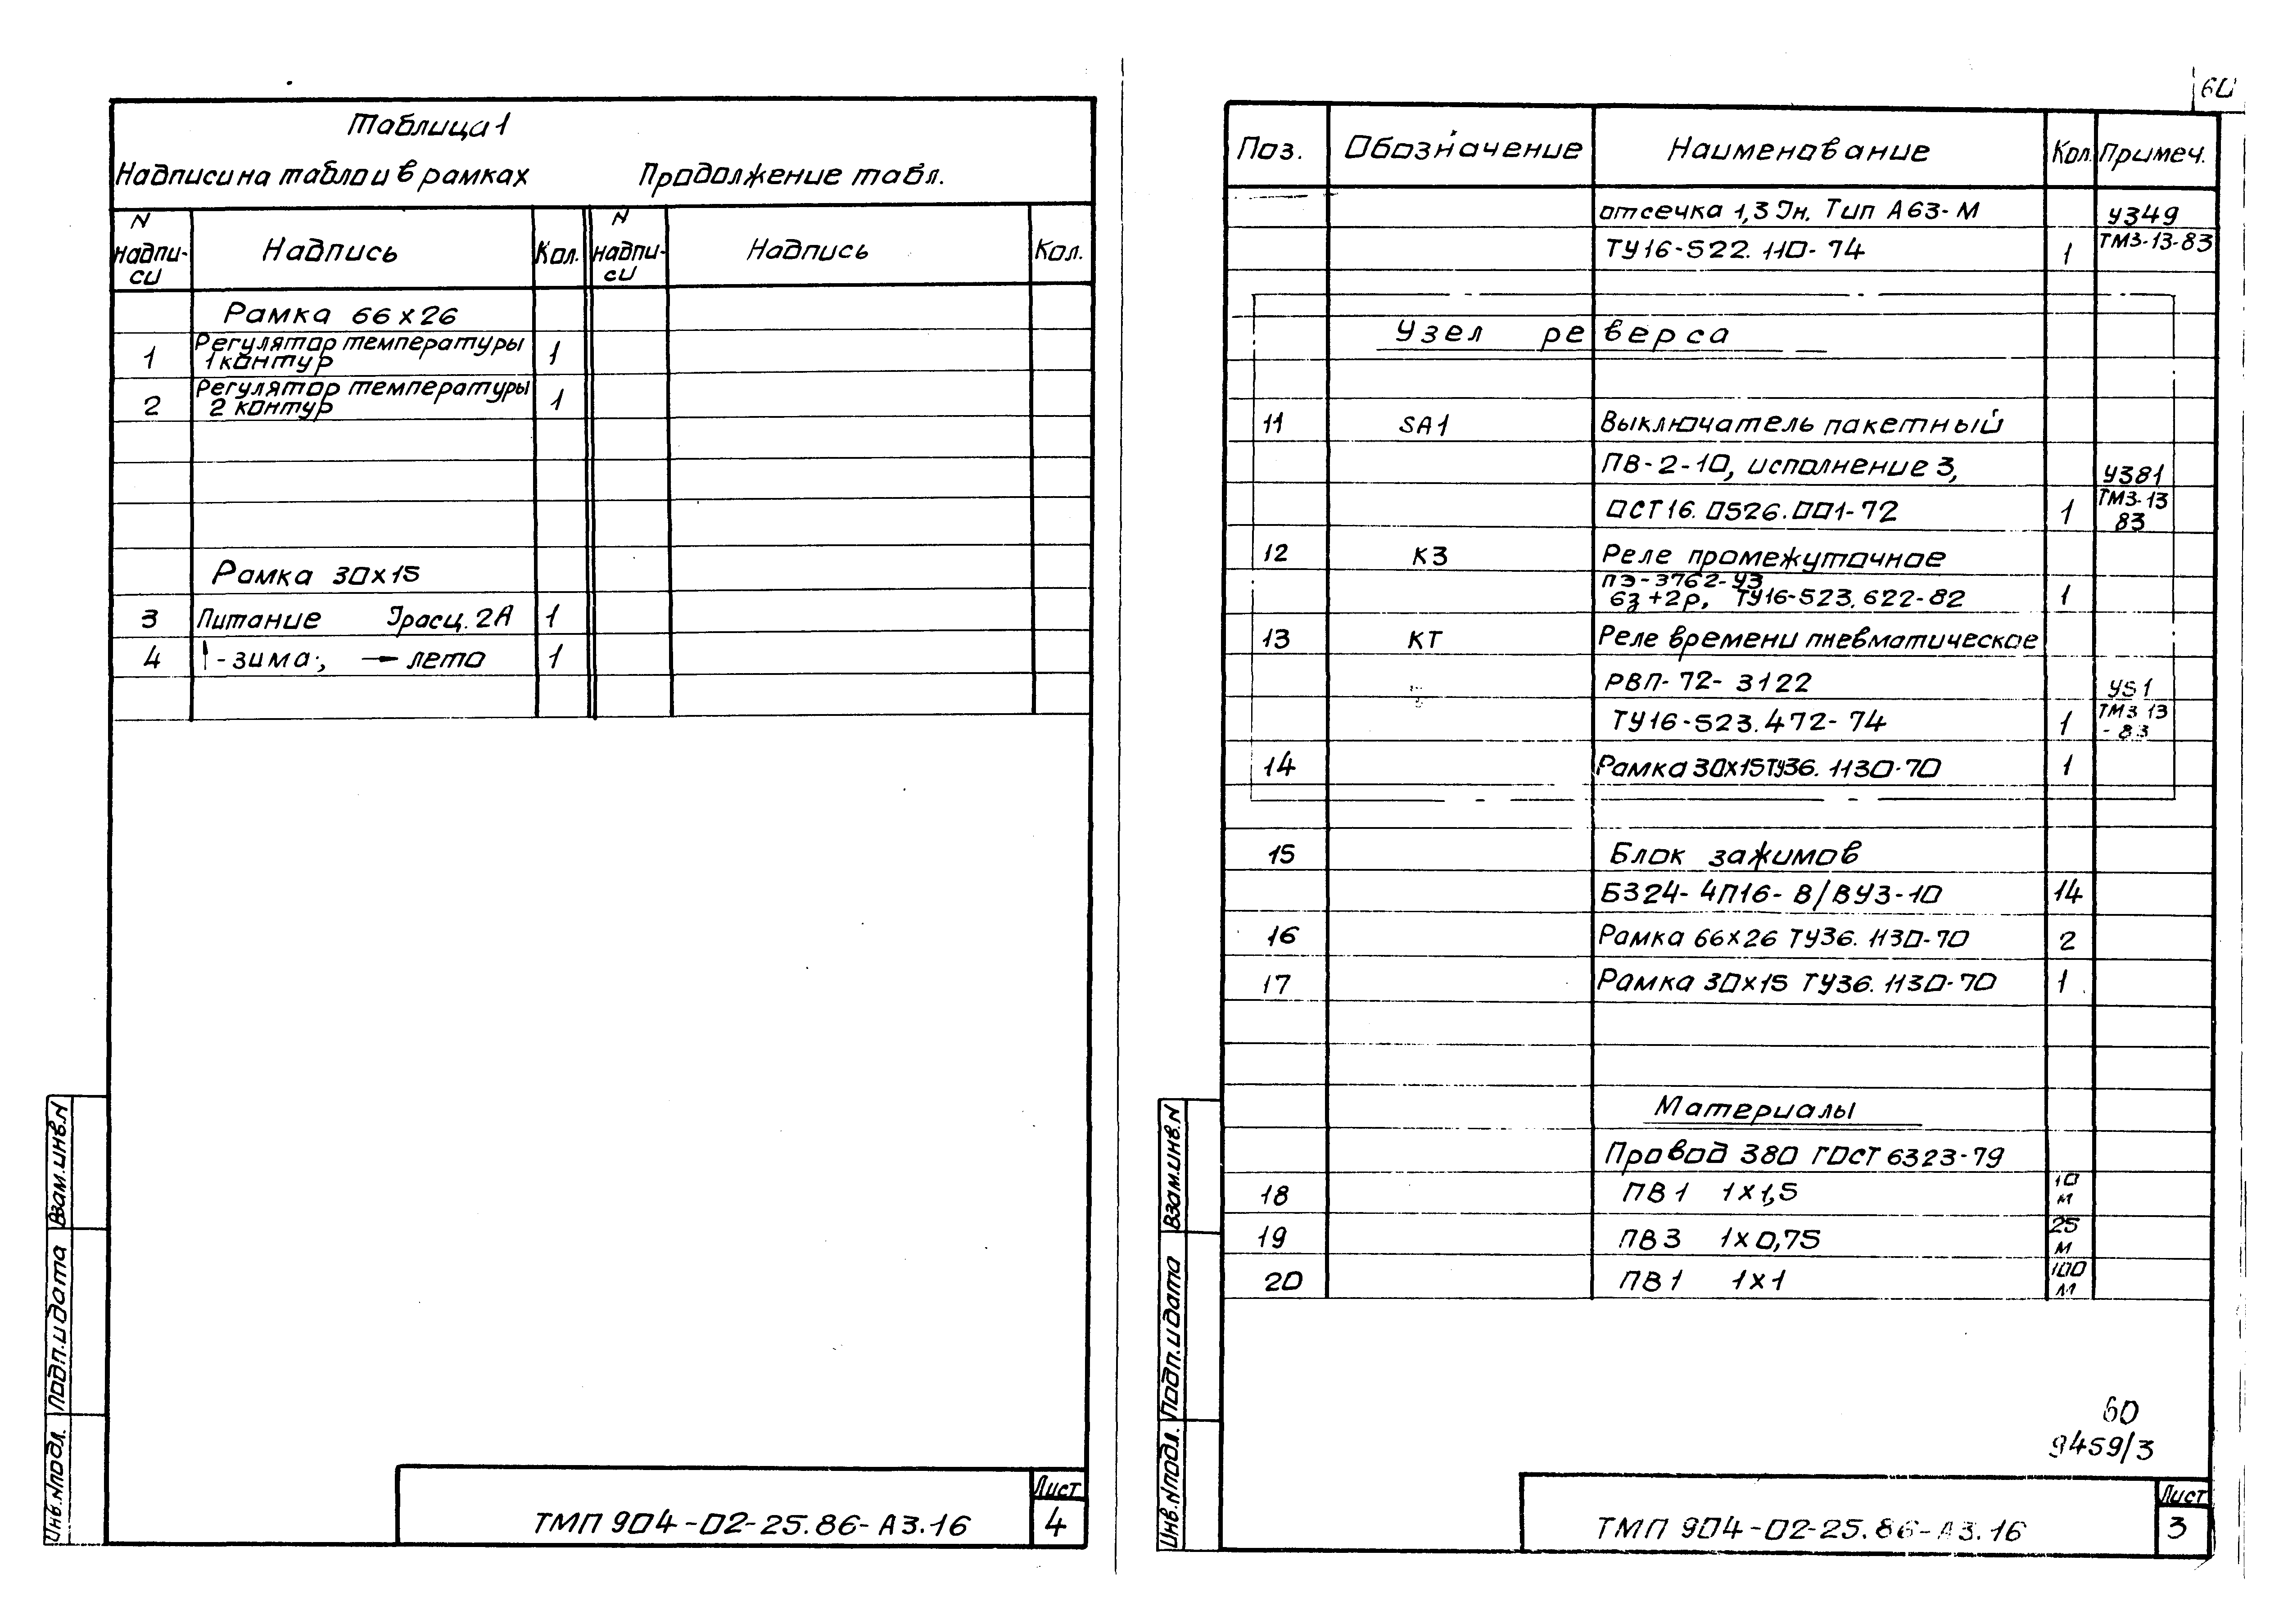 Таблица 1
Надписи на табло и в рамках Продолжение табл.
N надпи-си Надпись Кол. N надпи-си Надпись Кол.
Рамка 66х26
1 Регулятор температуры 1 контур 1
2 Регулятор температуры 2 контур 1
Рамка 30х15
3 Питание Iрасц. 2А 1
4 ↑ - зима; → лето 1
Взам.инв.N
Подп.и дата
Инв.Nподл.
ТМП 904-02-25.86-А3.16
Лист
4
60
Поз. Обозначение Наименование Кол. Примеч.
отсечка 1,3 Iн. Тип А63-М У349
ТУ16-522.110-74 1 ТМ3-13-83
Узел реверса
11 SA1 Выключатель пакетный
ПВ-2-10, исполнение 3, У381
ОСТ16.0526.001-72 1 ТМ3-13 83
12 К3 Реле промежуточное
ПЭ-3762-У3
6з+2р, ТУ16-523.622-82 1
13 КТ Реле времени пневматическое
РВП-72-3122 У51
ТУ16-523.472-74 1 ТМ3 13 -83
14 Рамка 30х15 ТУ36.1130-70 1
15 Блок зажимов
БЗ24-4П16-В/ВУ3-10 14
16 Рамка 66х26 ТУ36.1130-70 2
17 Рамка 30х15 ТУ36.1130-70 1
Материалы
Провод 380 ГОСТ 6323-79
18 ПВ1 1х1,5 10 м
19 ПВ3 1х0,75 25 м
20 ПВ1 1х1 100 м
60
9459/3
Взам.инв.N
Подп.и дата
Инв.Nподл.
ТМП 904-02-25.86-А3.16
Лист
3